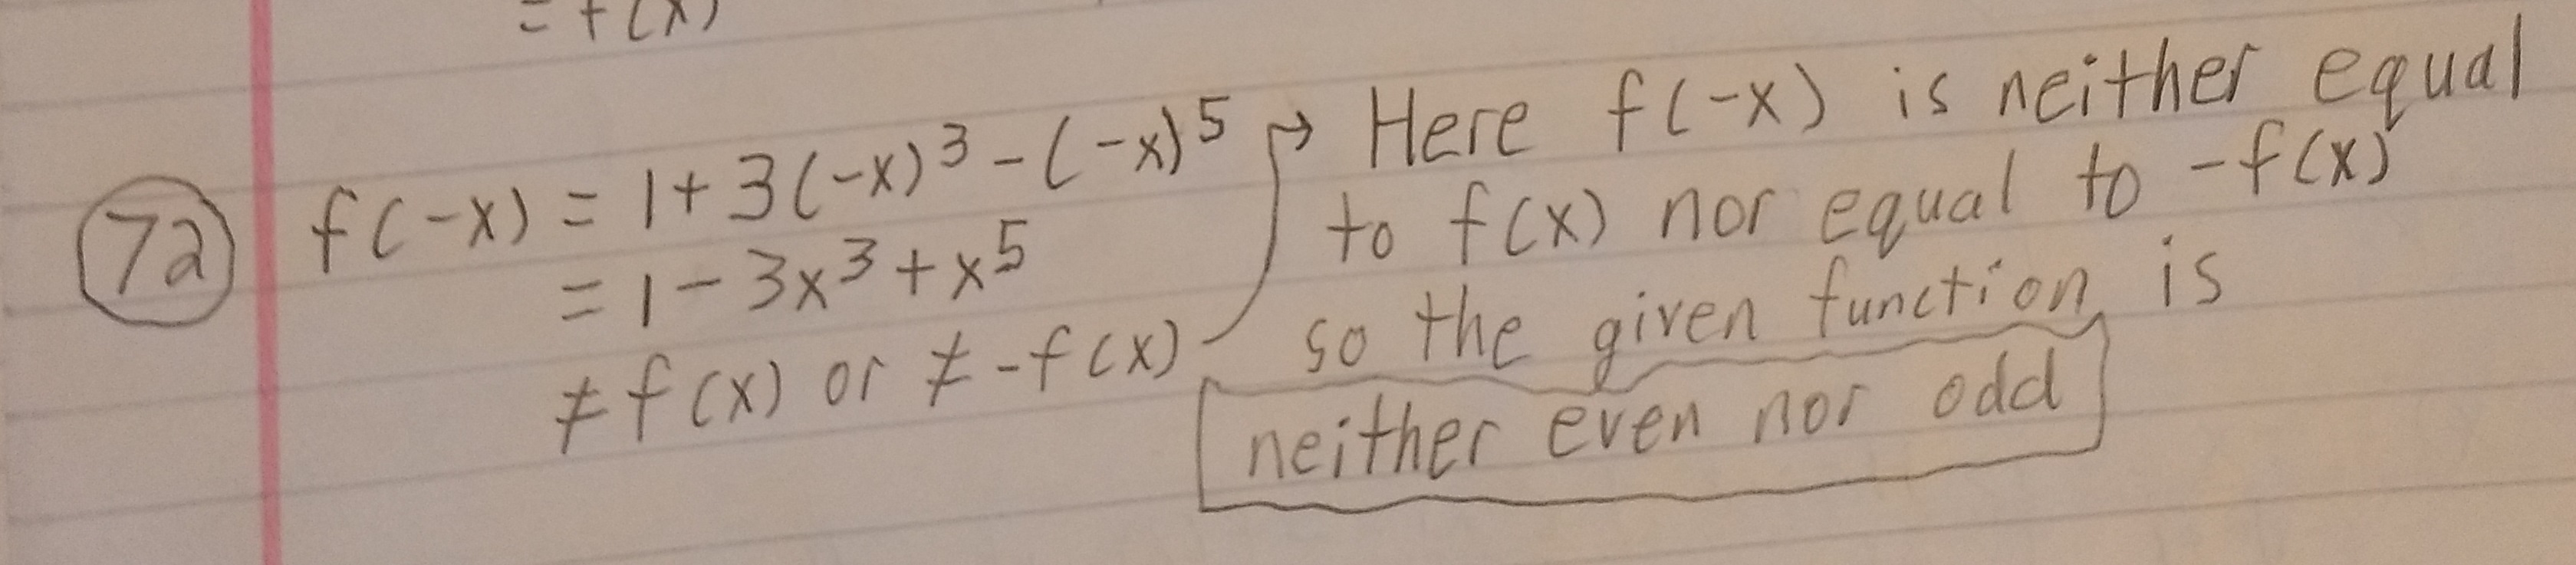 = f(x)
72 f(-x) = 1 + 3(-x)³ - (-x)⁵
= 1 - 3x³ + x⁵
≠ f(x) or ≠ -f(x)
→ Here f(-x) is neither equal
to f(x) nor equal to -f(x)
so the given function is
neither even nor odd